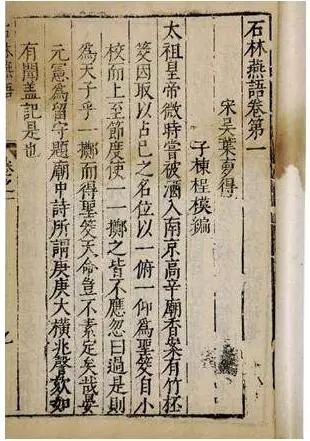 石林燕語卷第一
宋吳葉夢得
子棟桯模編
太祖皇帝微時嘗被酒入南京高辛廟香案有竹柸
筊因取以占已之名位以一俯一仰爲聖筊自小
校而上至節度使一一擲之皆不應忽曰過是則
爲天子乎一擲而得聖筊天命豈不素定矣哉晏
元憲爲留守題廟中詩所謂庚庚大橫兆謦欬如
有聞蓋記是也